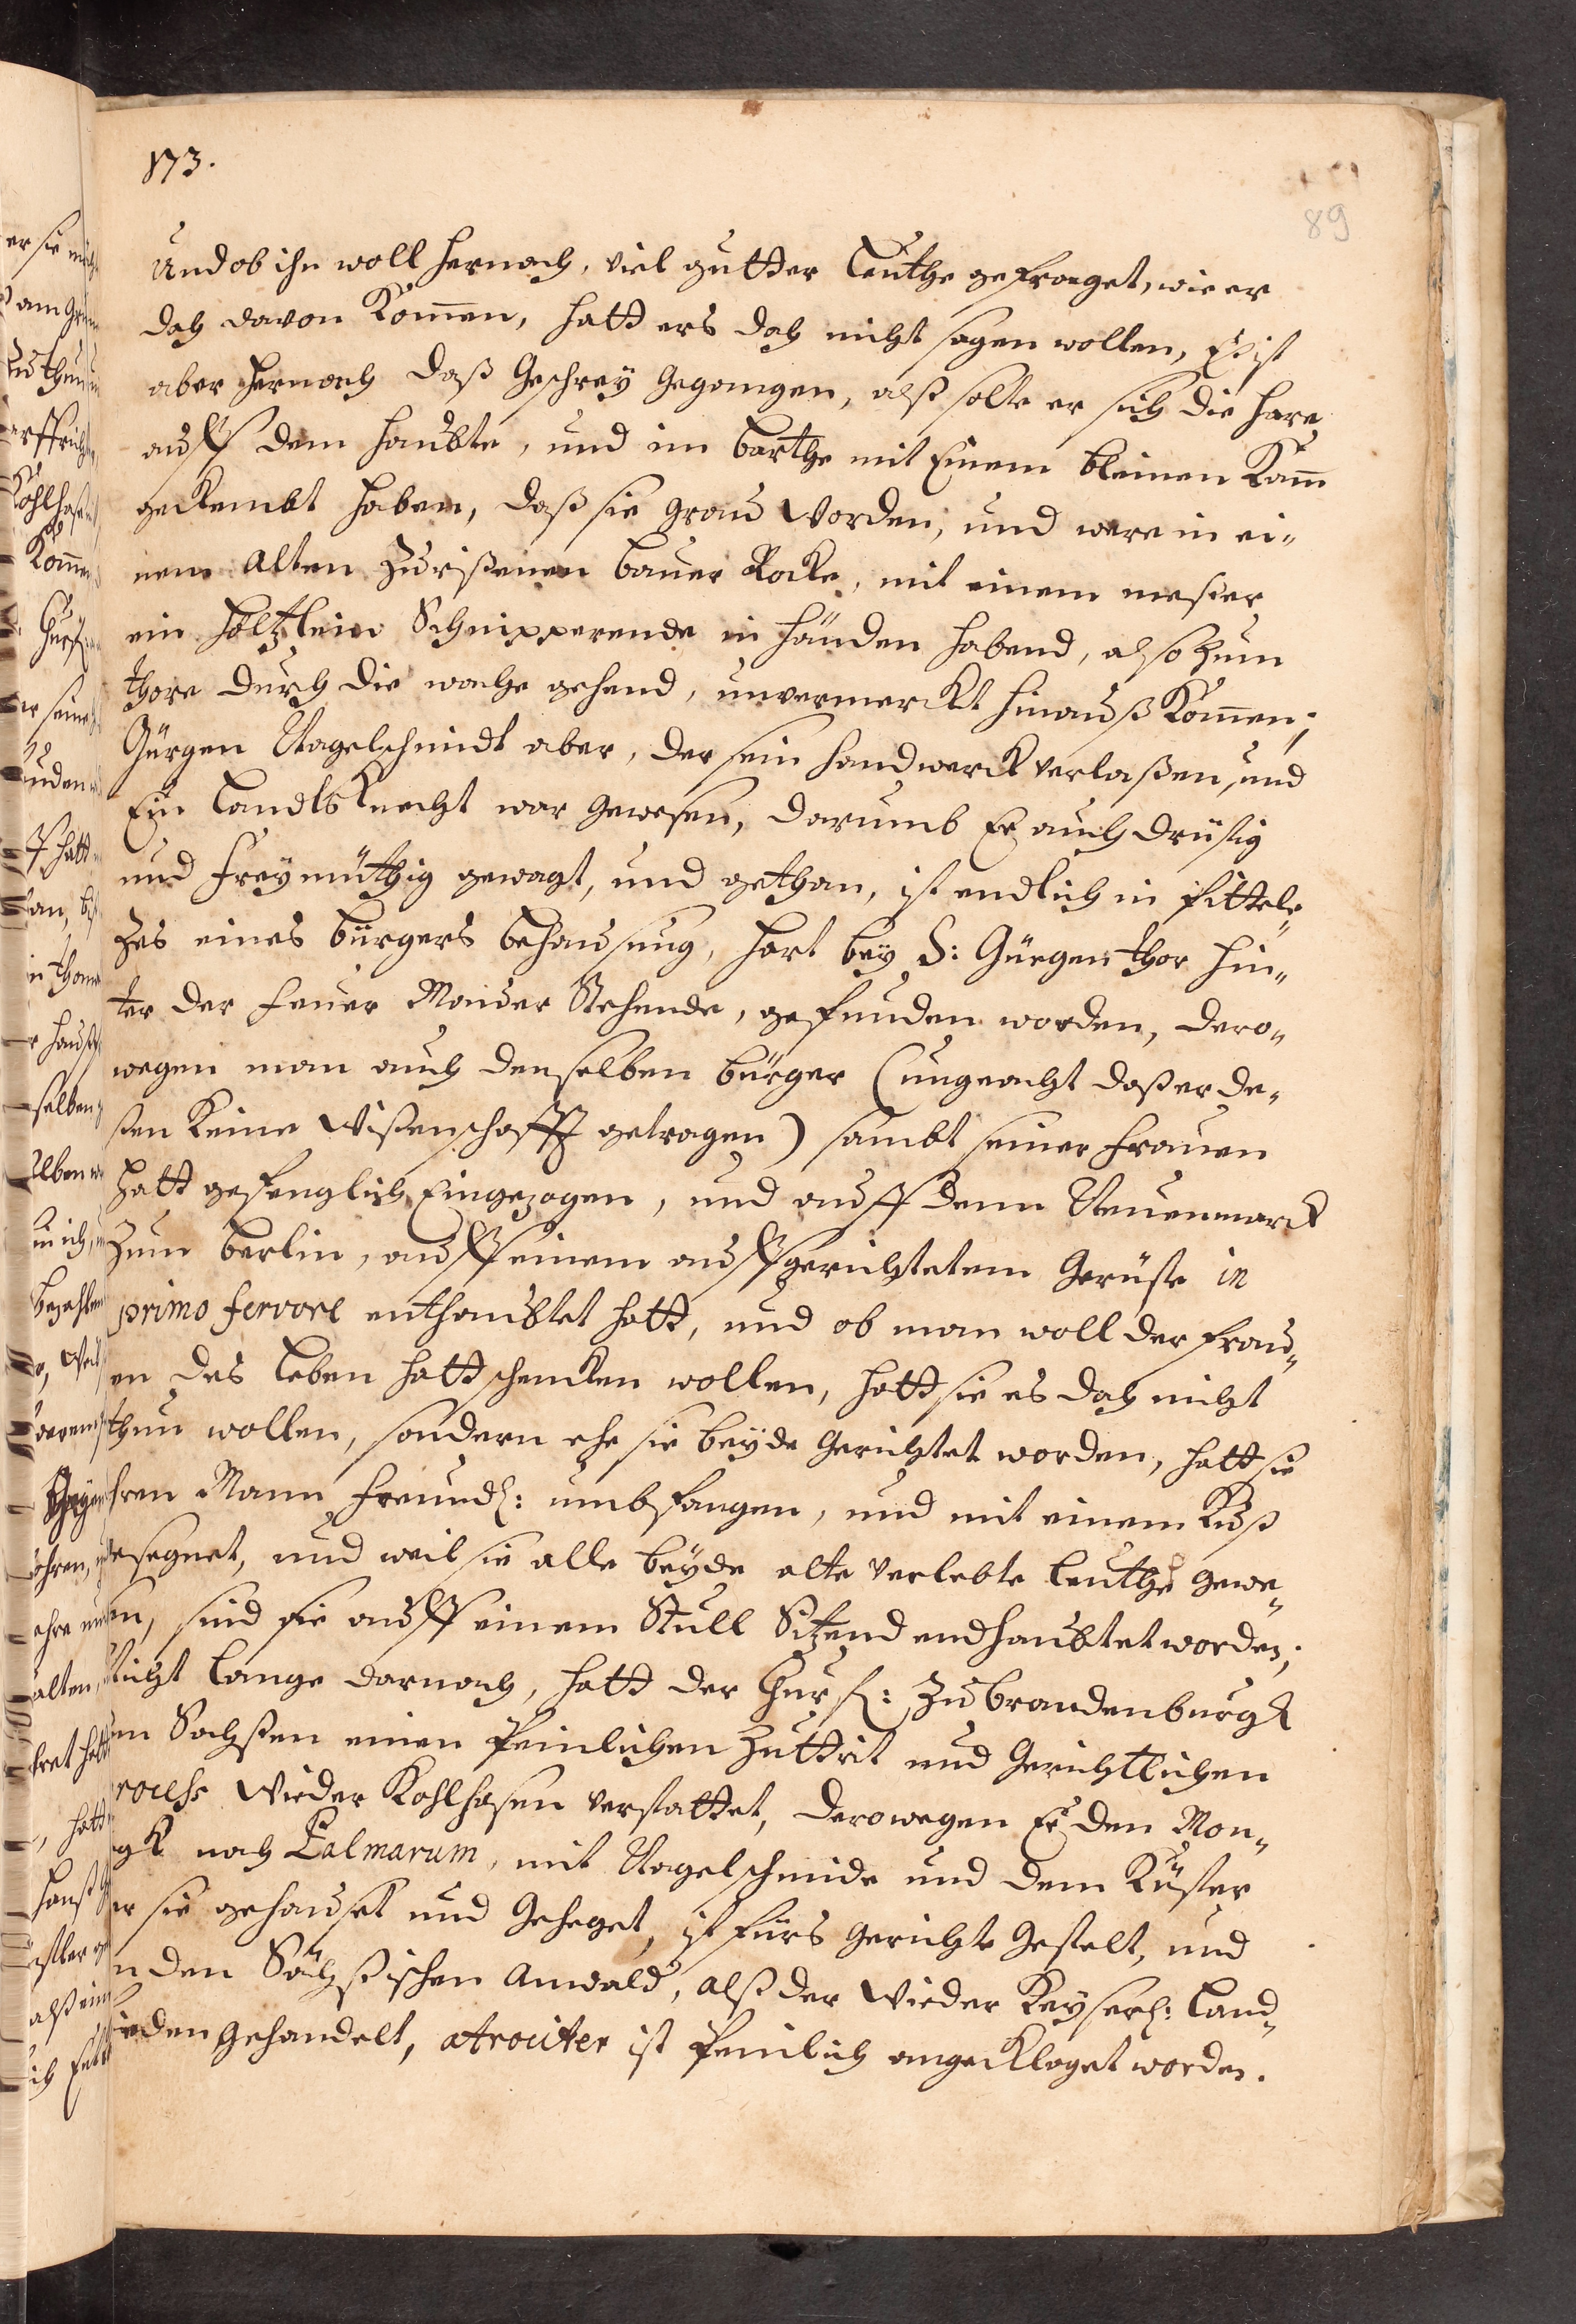 173.
89
Und ob ihn woll hernach, viel gutter Leuthe gefraget, wie er
doch davon Kom̃en, hatt ers doch nicht sagen wollen, Es ist
aber hernach daß Geschrey Gegangen, alß solte er sich die Hare
auff dem Haubte, und im barthe mit Einem bleinen Kam̃
gekembt haben, daß sie grau Worden, und were in ei¬
nem Alten Zurißenen bauer Rocke, mit einem meßer
ein höltzlein Schnipperende in händen habend, also Zum
thore durch die wache gehend, unvermerckt hinauß Kom̃en;
Gürgen Nagelschmidt aber, der sein handwerck verlaßen, und
Ein Landts Knecht war Gewesen, darumb Er auch drüstig
und Freymüthig gewagt, und gethan, ist endlich in Fittele¬
Zes eines bürgers behausung, hart bey S: Gürgen thor hin¬
ter der feuer Mauer Stehende, gefunden worden, dero¬
wegen man auch denselben bürger (ungeacht daß er de¬
ßen Keine Wißenschafft getragen) sambt seiner Frauen
hatt gefenglich Eingezogen, und auff dem Neuenmarckt
Zum berlin, auff einem auffgerichtetem Gerüste in
primo fervore enthaubtet hatt, und ob man woll der frau¬
en das Leben hatt schencken wollen, hatt sie es doch nicht
thun wollen, sondern ehe sie beyde Gerichtet worden, hatt sie
hren Mann Freundl: umbfangen, und mit einem Kuß
esegnet, und weil sie alle beyde alte verlebte Leuthe gewe¬
en, sind sie auff einem Stull Sitzend endhaubtet worden;
Nicht Lange darnach, hatt der Churf: zu brandenburgk
en Sachßen einen Peinlichen Zuttrit und Gerichtlichen
rocess Wieder Kohlhasen verstattet, derowegen Er den Mon¬
gk nach Palmarum, mit Nagelschmide und dem Küster
er sie gehauset und Geheget, ist fürs Gerichte Gestelt, und
n den Sächßischen Anwald, alß der Wieder Keyserl: Land¬
ieden Gehandelt, atrociter ist Peinlich angeklaget worden.